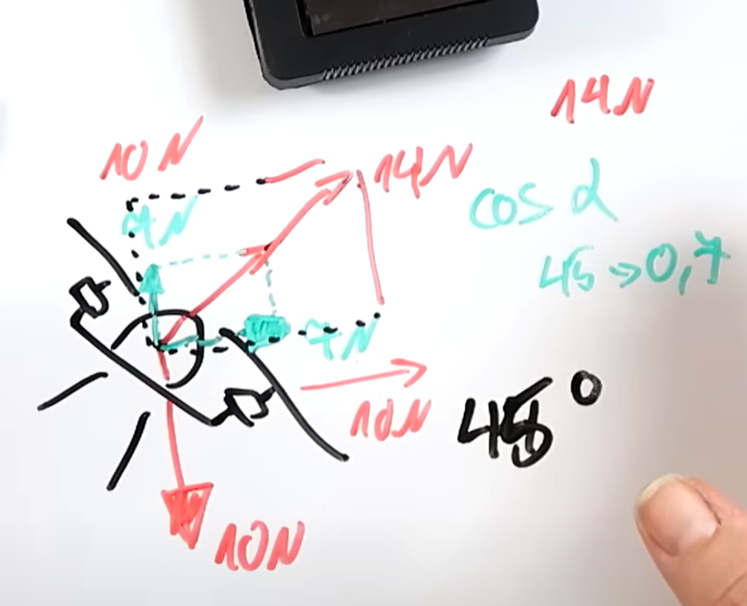 14N
10N
14N
cos α
7N
45 → 0,7
7N
10N
45°
10N